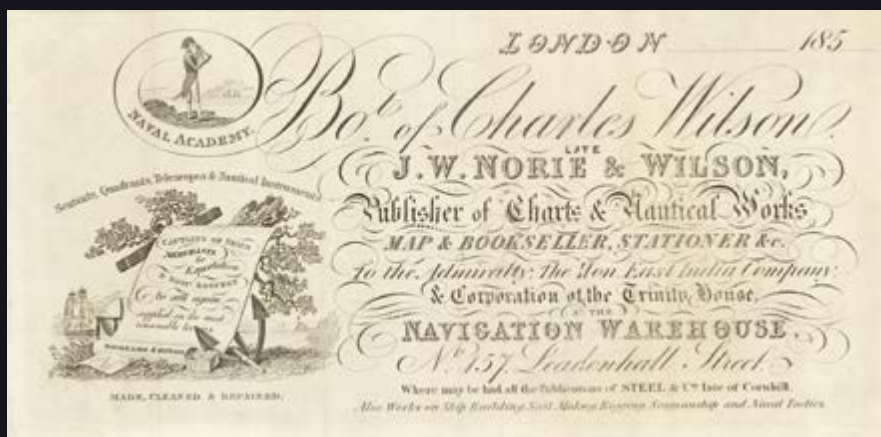 LONDON 185
NAVAL ACADEMY.
Bo.t of Charles Wilson.
LATE
J. W. NORIE & WILSON,
Publisher of Charts & Nautical Works
MAP & BOOKSELLER, STATIONER &c.
To the Admiralty, The Hon. East India Company,
& Corporation of the Trinity House,
AT THE
NAVIGATION WAREHOUSE.
No. 157, Leadenhall Street.
Where may be had all the Publications of STEEL & Co. late of Cornhill.
Also Works on Ship Building Sail Making Rigging Seamanship and Naval Tactics
Sextants, Quadrants, Telescopes & Nautical Instruments
CAPTAINS OF SHIPS
MERCHANTS
for
Exportation
&
To sell again
supplied on the most
reasonable terms
MADE, CLEANED & REPAIRED.